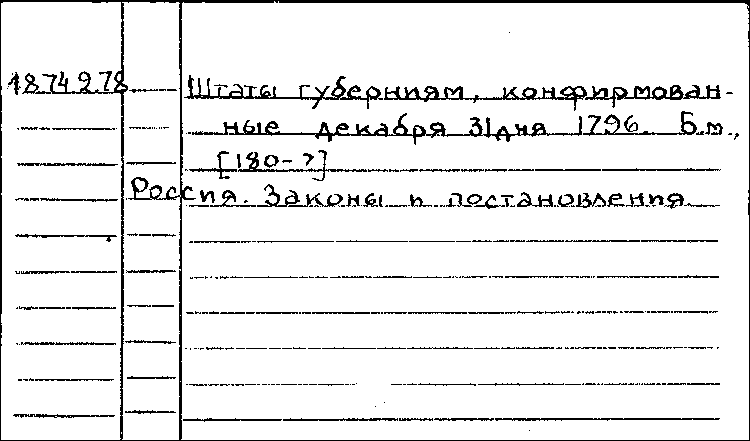 18.74.2.78 Штаты губерниям, конфирмован-
ные декабря 31 дня 1796. Б.м.,
[180-?]
Россия. Законы и постановления.